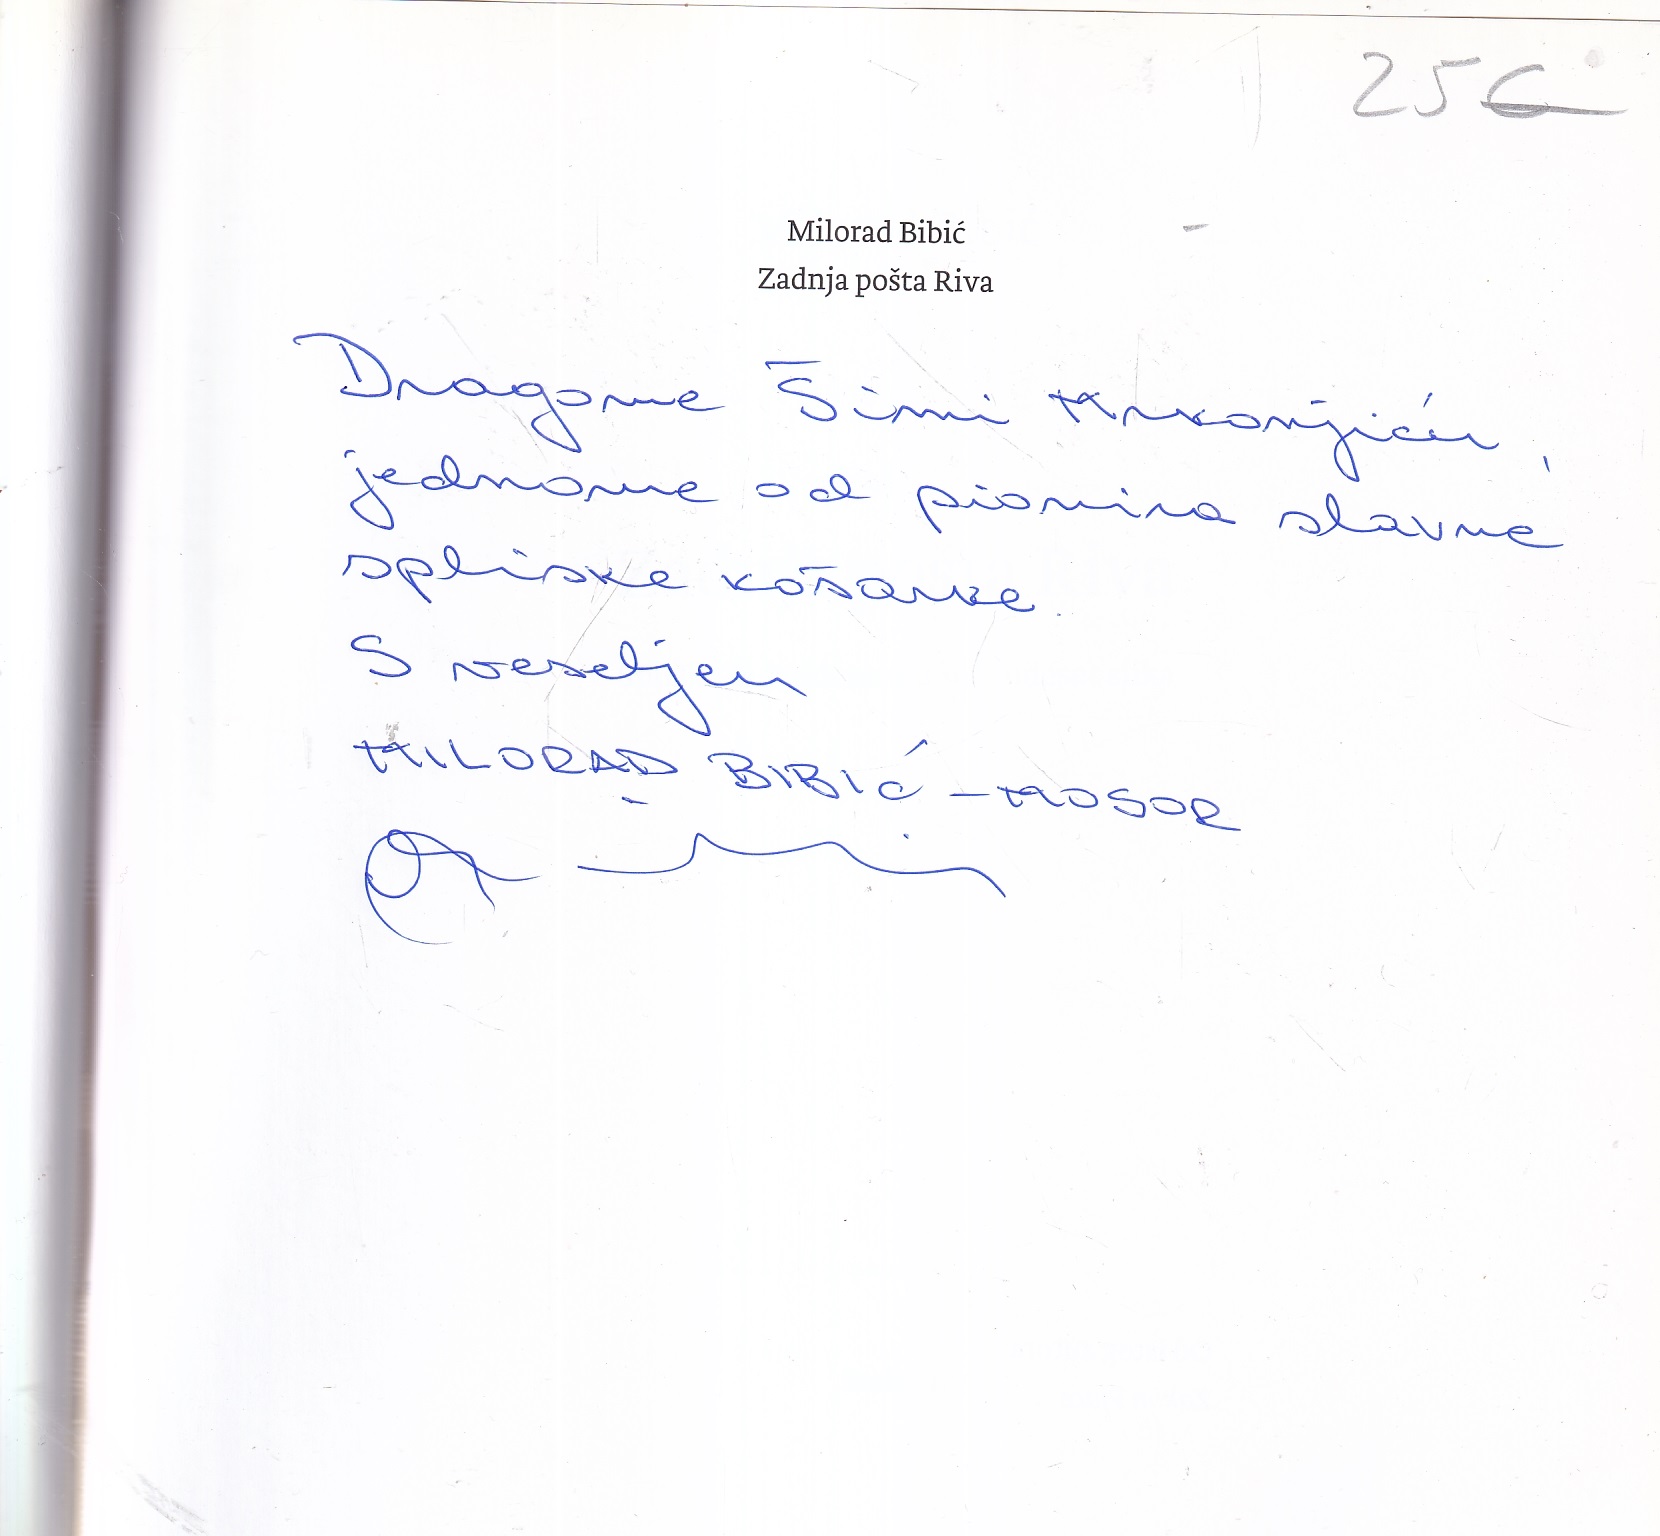 25€
Milorad Bibić
Zadnja pošta Riva
Dragome Šimi Mrkonjiću,
jednome od pionira slavne
spliske košarke.
S veseljem
MILORAD BIBIĆ - MOSOR